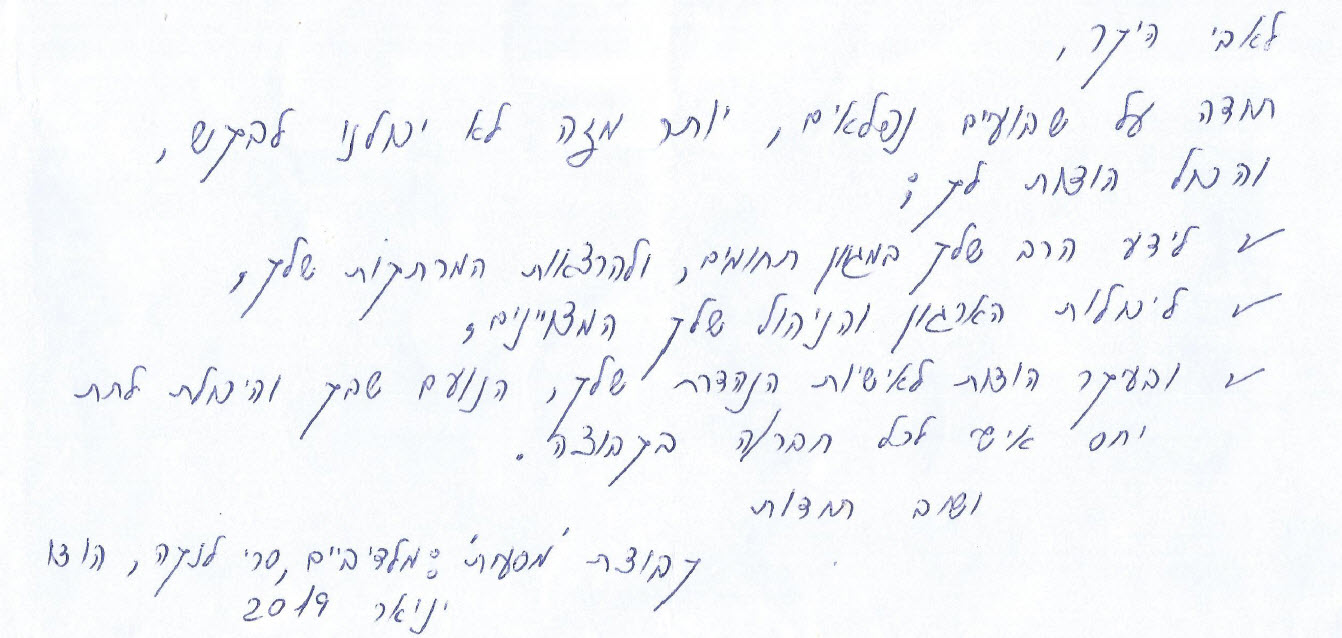 לאבי היקר,
תודה על שבועיים נפלאים, יותר מזה לא יכולנו לבקש,
והכול הודות לך:
✓ לידע הרב שלך במגוון תחומים, ולהרצאות המרתקות שלך,
✓ ליכולות הארגון והניהול שלך המצויינים;
✓ ובעיקר הודות לאישיות הנהדרת שלך, הנועם שבך והיכולת לתת
יחס אישי לכל חבר/ה בקבוצה.
ושוב תודות
קבוצת 'מסעות': מלדיביים, סרי לנקה, הודו
ינואר 2019